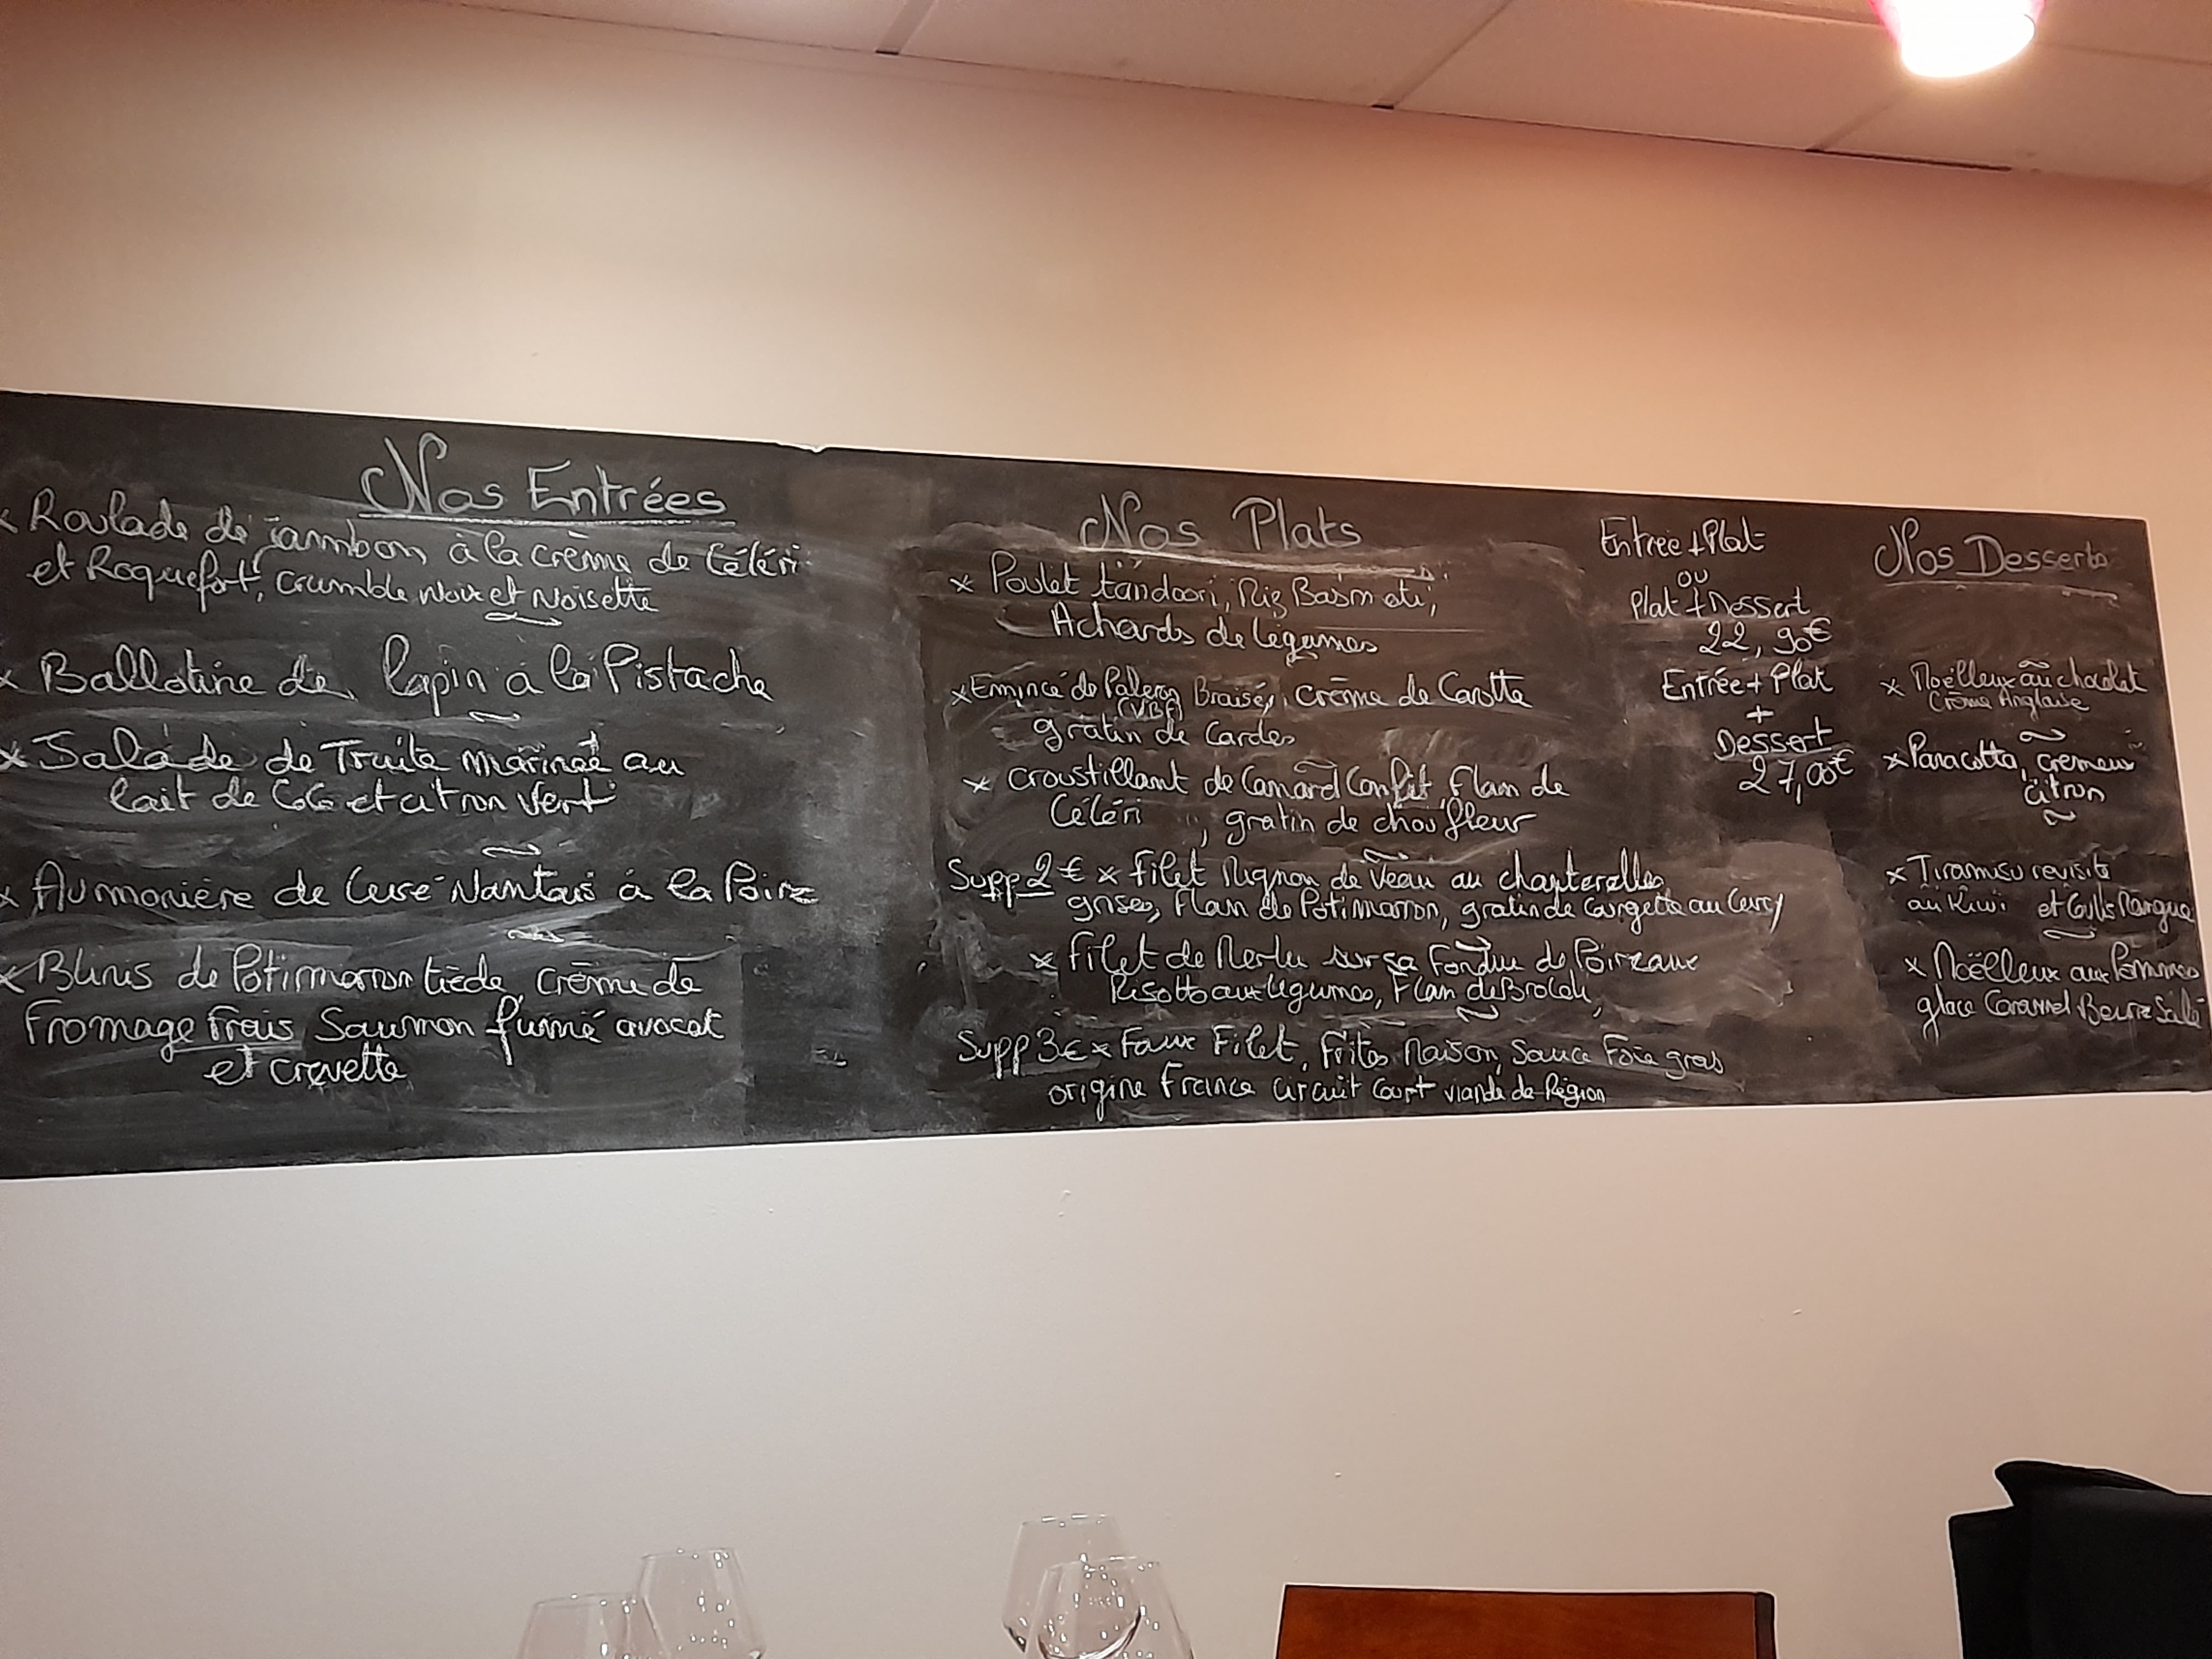 Nos Entrées
x Roulade de jambon à la crème de Céléri
et Roquefort, crumble Noix et Noisette
x Ballotine de lapin à la Pistache
x Salade de Truite marinée au
lait de CoCo et citron Vert
x Aumonière de Curé Nantais à la Poire
x Blinis de Potimarron tiède crème de
Fromage Frais Saumon fumé avocat
et crevette
Nos Plats
x Poulet tandoori, Riz Basmati,
Achards de légumes
x Emincé de Paleron Braisé, crème de Carotte
(VBF)
gratin de Cardes
x Croustillant de Canard Confit, Flan de
Céléri, gratin de chou fleur
Supp 2€ x Filet Mignon de Veau au chanterelles
grises, Flan de Potimarron, gratin de Courgette au Curry
x Filet de Merlu sur sa Fondue de Poireaux
Risotto aux légumes, Flan de Brocoli
Supp 3€ x Faux Filet, Frites Maison, Sauce Foie gras
origine France circuit court viande de Région
Entrée + Plat
ou
Plat + Dessert
22,90€
Entrée + Plat
+
Dessert
27,00€
Nos Desserts
x Moëlleux au chocolat
Crème Anglaise
x Panacotta, crémeux
citron
x Tiramisu revisité
au Kiwi et Coulis Mangue
x Moëlleux aux Pommes
glace Caramel Beurre Salé